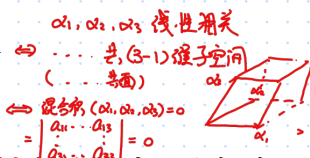 α₁, α₂, α₃ 线性相关
⇔ ..... 共(3-1)维子空间
( ..... 共面)
⇔ 混合积(α₁,α₂,α₃)=0
= | a₁₁ ... a₁₃ |
| a₃₁ ... a₃₃ | = 0
α₃
α₂
α₁